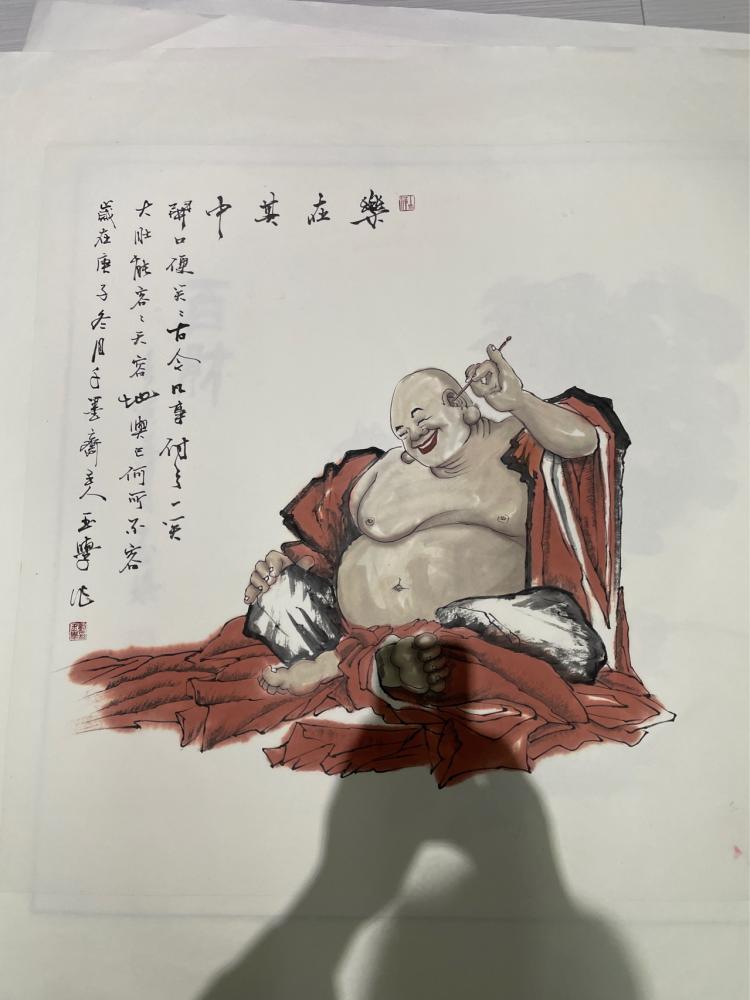 樂在其中
開口便笑〻古今凡事付之一笑
大肚能容〻天容地與己何所不容
歲在庚子冬月墨齋主人玉學作